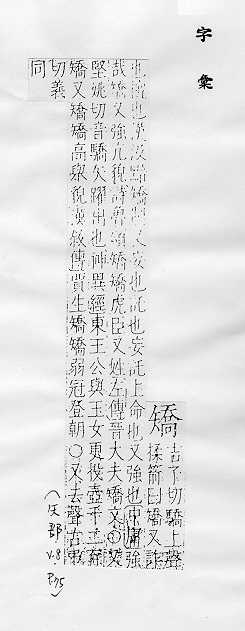 字彙
矯 吉了切驕上聲
揉箭曰矯又詐
也擅也漢汲黯矯制又妄也託也妄託上命也又強也中庸強
哉矯又強亢貌詩魯頌矯矯虎臣又姓左傳晉大夫矯父○又
堅姚切音驕矢躍出也神異經東王公與玉女更投壺千二百
矯又矯矯高舉貌漢敘傳賈生矯矯弱冠登朝○又去聲吉
切義
同
(矢部 V.8 P.75)